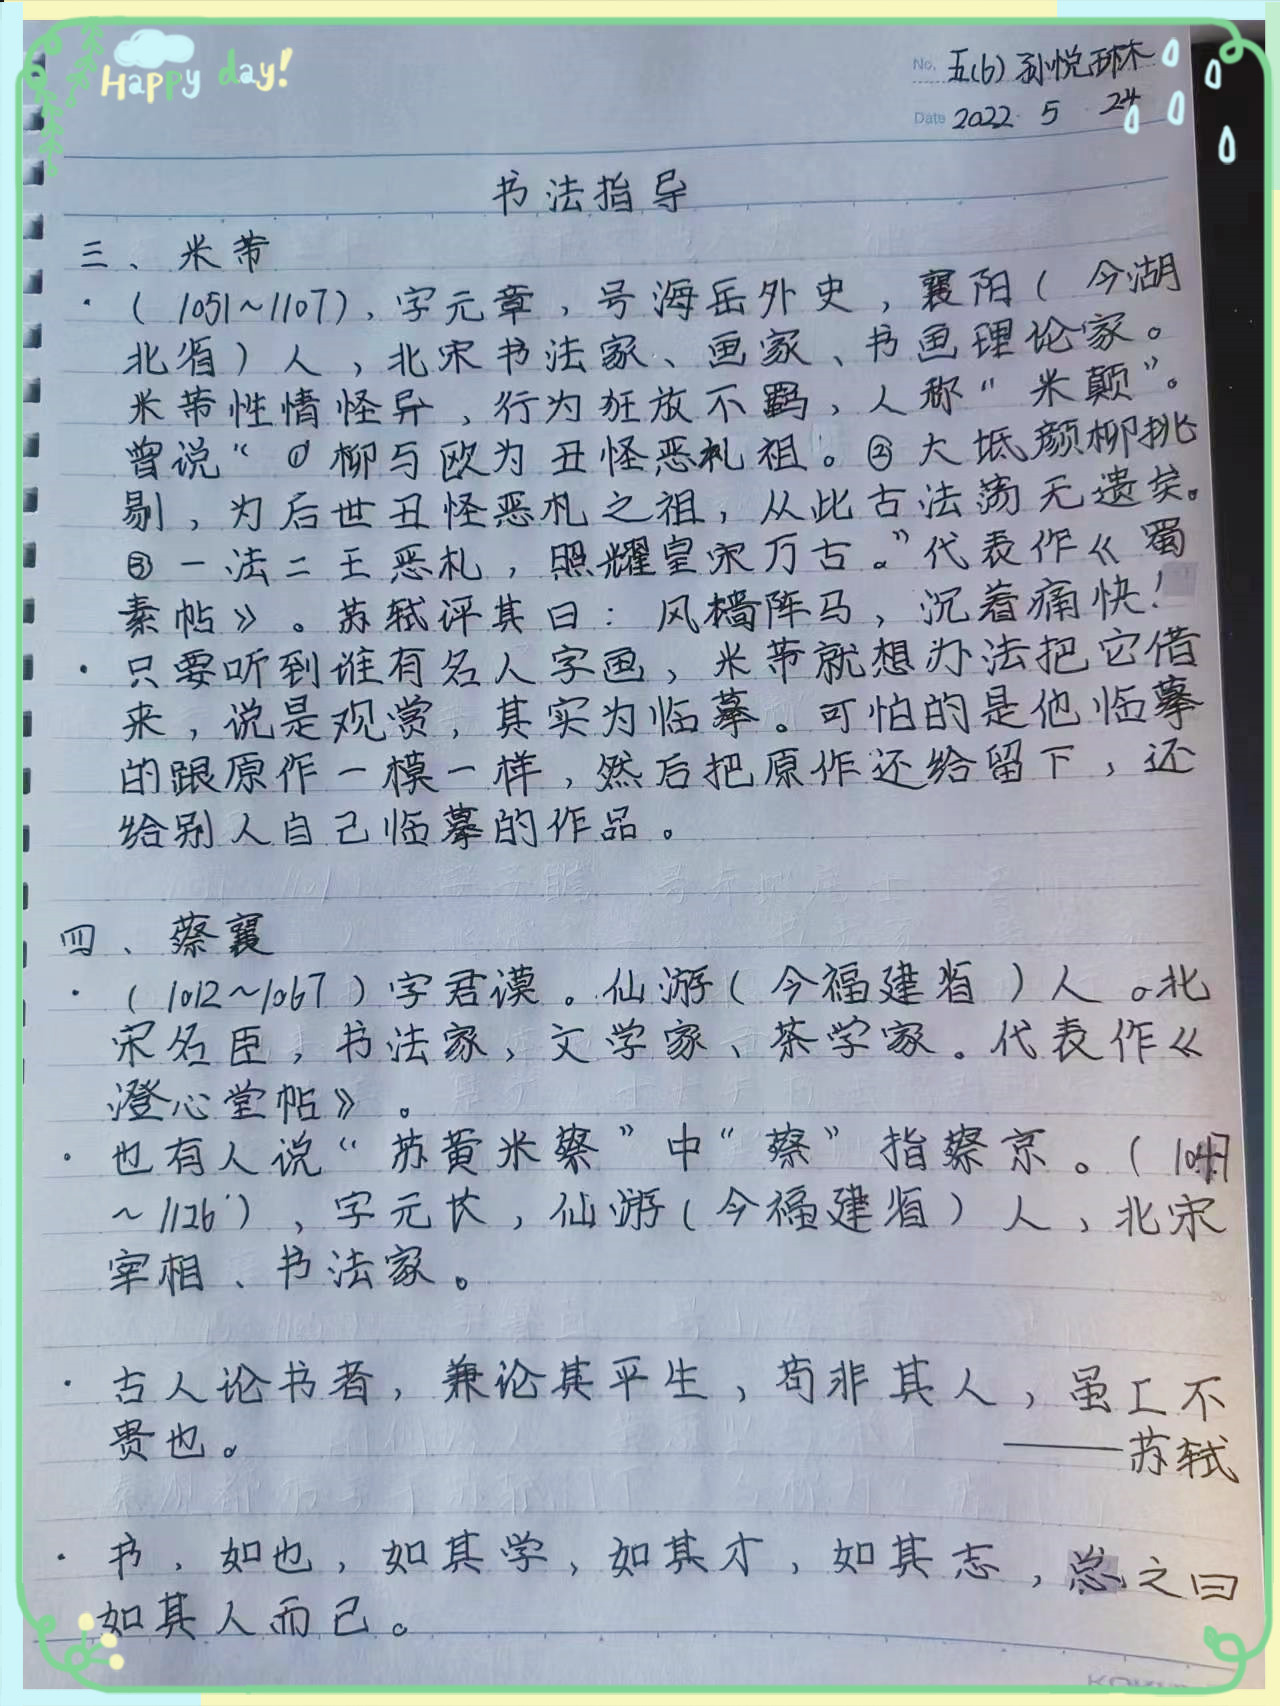 Happy day!
No. 五(6) 孙悦琳
Date 2022 5 24
书法指导
三、米芾
·(1051~1107),字元章,号海岳外史,襄阳(今湖
北省)人,北宋书法家、画家、书画理论家。
米芾性情怪异,行为狂放不羁,人称“米颠”。
曾说“①柳与欧为丑怪恶札祖。②大抵颜柳挑
剔,为后世丑怪恶札之祖,从此古法荡无遗矣。
③一法二王恶札,照耀皇宋万古。”代表作《蜀
素帖》。苏轼评其曰:风樯阵马,沉着痛快!
·只要听到谁有名人字画,米芾就想办法把它借
来,说是观赏,其实为临摹。可怕的是他临摹
的跟原作一模一样,然后把原作还给留下,还
给别人自己临摹的作品。
四、蔡襄
·(1012~1067)字君谟。仙游(今福建省)人。北
宋名臣,书法家,文学家、茶学家。代表作《
澄心堂帖》。
·也有人说“苏黄米蔡”中“蔡”指蔡京。(1047
~1126),字元长,仙游(今福建省)人,北宋
宰相、书法家。
·古人论书者,兼论其平生,苟非其人,虽工不
贵也。
——苏轼
·书,如也,如其学,如其才,如其志,总之曰
如其人而已。